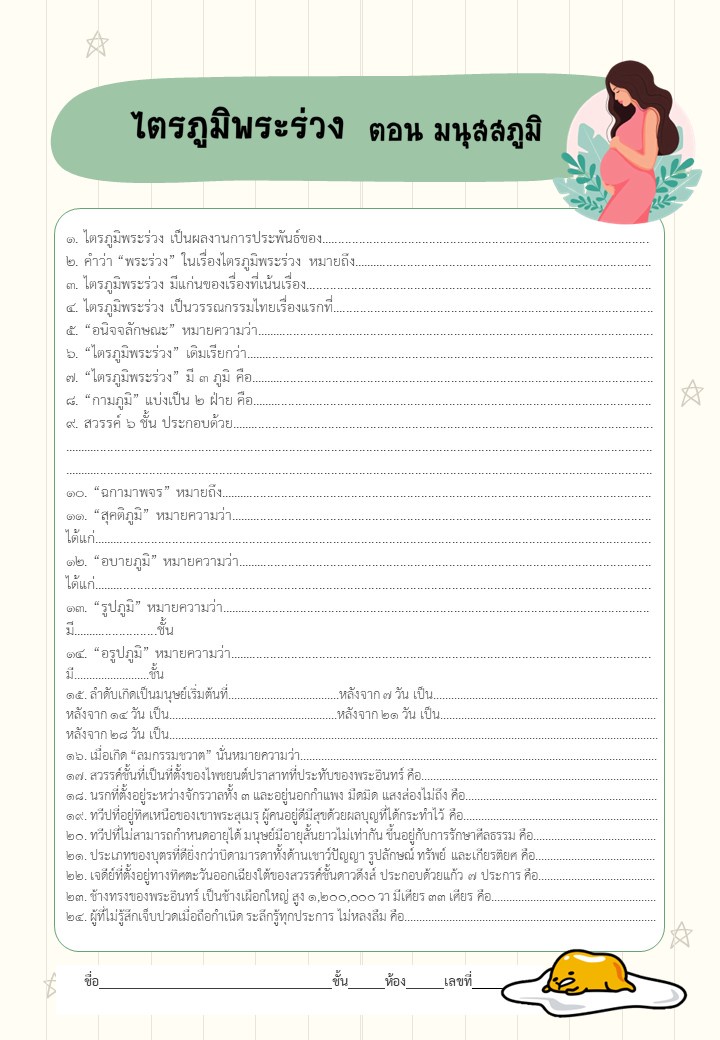 ไตรภูมิพระร่วง ตอน มนุสสภูมิ
๑. ไตรภูมิพระร่วง เป็นผลงานการประพันธ์ของ................................................................................
๒. คำว่า “พระร่วง” ในเรื่องไตรภูมิพระร่วง หมายถึง................................................................................
๓. ไตรภูมิพระร่วง มีแก่นของเรื่องที่เน้นเรื่อง................................................................................
๔. ไตรภูมิพระร่วง เป็นวรรณกรรมไทยเรื่องแรกที่................................................................................
๕. “อนิจจลักษณะ” หมายความว่า................................................................................
๖. “ไตรภูมิพระร่วง” เดิมเรียกว่า................................................................................
๗. “ไตรภูมิพระร่วง” มี ๓ ภูมิ คือ................................................................................
๘. “กามภูมิ” แบ่งเป็น ๒ ฝ่าย คือ................................................................................
๙. สวรรค์ ๖ ชั้น ประกอบด้วย................................................................................
................................................................................
................................................................................
๑๐. “ฉกามาพจร” หมายถึง................................................................................
๑๑. “สุคติภูมิ” หมายความว่า................................................................................
ได้แก่................................................................................
๑๒. “อบายภูมิ” หมายความว่า................................................................................
ได้แก่................................................................................
๑๓. “รูปภูมิ” หมายความว่า................................................................................
มี........................ชั้น
๑๔. “อรูปภูมิ” หมายความว่า................................................................................
มี........................ชั้น
๑๕. ลำดับเกิดเป็นมนุษย์เริ่มต้นที่................................หลังจาก ๗ วัน เป็น................................
หลังจาก ๑๔ วัน เป็น................................หลังจาก ๒๑ วัน เป็น................................
หลังจาก ๒๘ วัน เป็น................................................................................
๑๖. เมื่อเกิด “ลมกรรมชวาต” นั่นหมายความว่า................................................................................
๑๗. สวรรค์ชั้นที่เป็นที่ตั้งของไพชยนต์ปราสาทที่ประทับของพระอินทร์ คือ................................
๑๘. นรกที่ตั้งอยู่ระหว่างจักรวาลทั้ง ๓ และอยู่นอกกำแพง มืดมิด แสงส่องไม่ถึง คือ................................
๑๙. ทวีปที่อยู่ทิศเหนือของเขาพระสุเมรุ ผู้คนอยู่ดีมีสุขด้วยผลบุญที่ได้กระทำไว้ คือ................................
๒๐. ทวีปที่ไม่สามารถกำหนดอายุได้ มนุษย์มีอายุสั้นยาวไม่เท่ากัน ขึ้นอยู่กับการรักษาศีลธรรม คือ................................
๒๑. ประเภทของบุตรที่ดียิ่งกว่าบิดามารดาทั้งด้านเชาว์ปัญญา รูปลักษณ์ ทรัพย์ และเกียรติยศ คือ................................
๒๒. เจดีย์ที่ตั้งอยู่ทางทิศตะวันออกเฉียงใต้ของสวรรค์ชั้นดาวดึงส์ ประกอบด้วยแก้ว ๗ ประการ คือ................................
๒๓. ช้างทรงของพระอินทร์ เป็นช้างเผือกใหญ่ สูง ๑,๒๐๐,๐๐๐ วา มีเศียร ๓๓ เศียร คือ................................
๒๔. ผู้ที่ไม่รู้สึกเจ็บปวดเมื่อถือกำเนิด ระลึกรู้ทุกประการ ไม่หลงลืม คือ................................
ชื่อ________________________________ชั้น_____ห้อง_____เลขที่_____